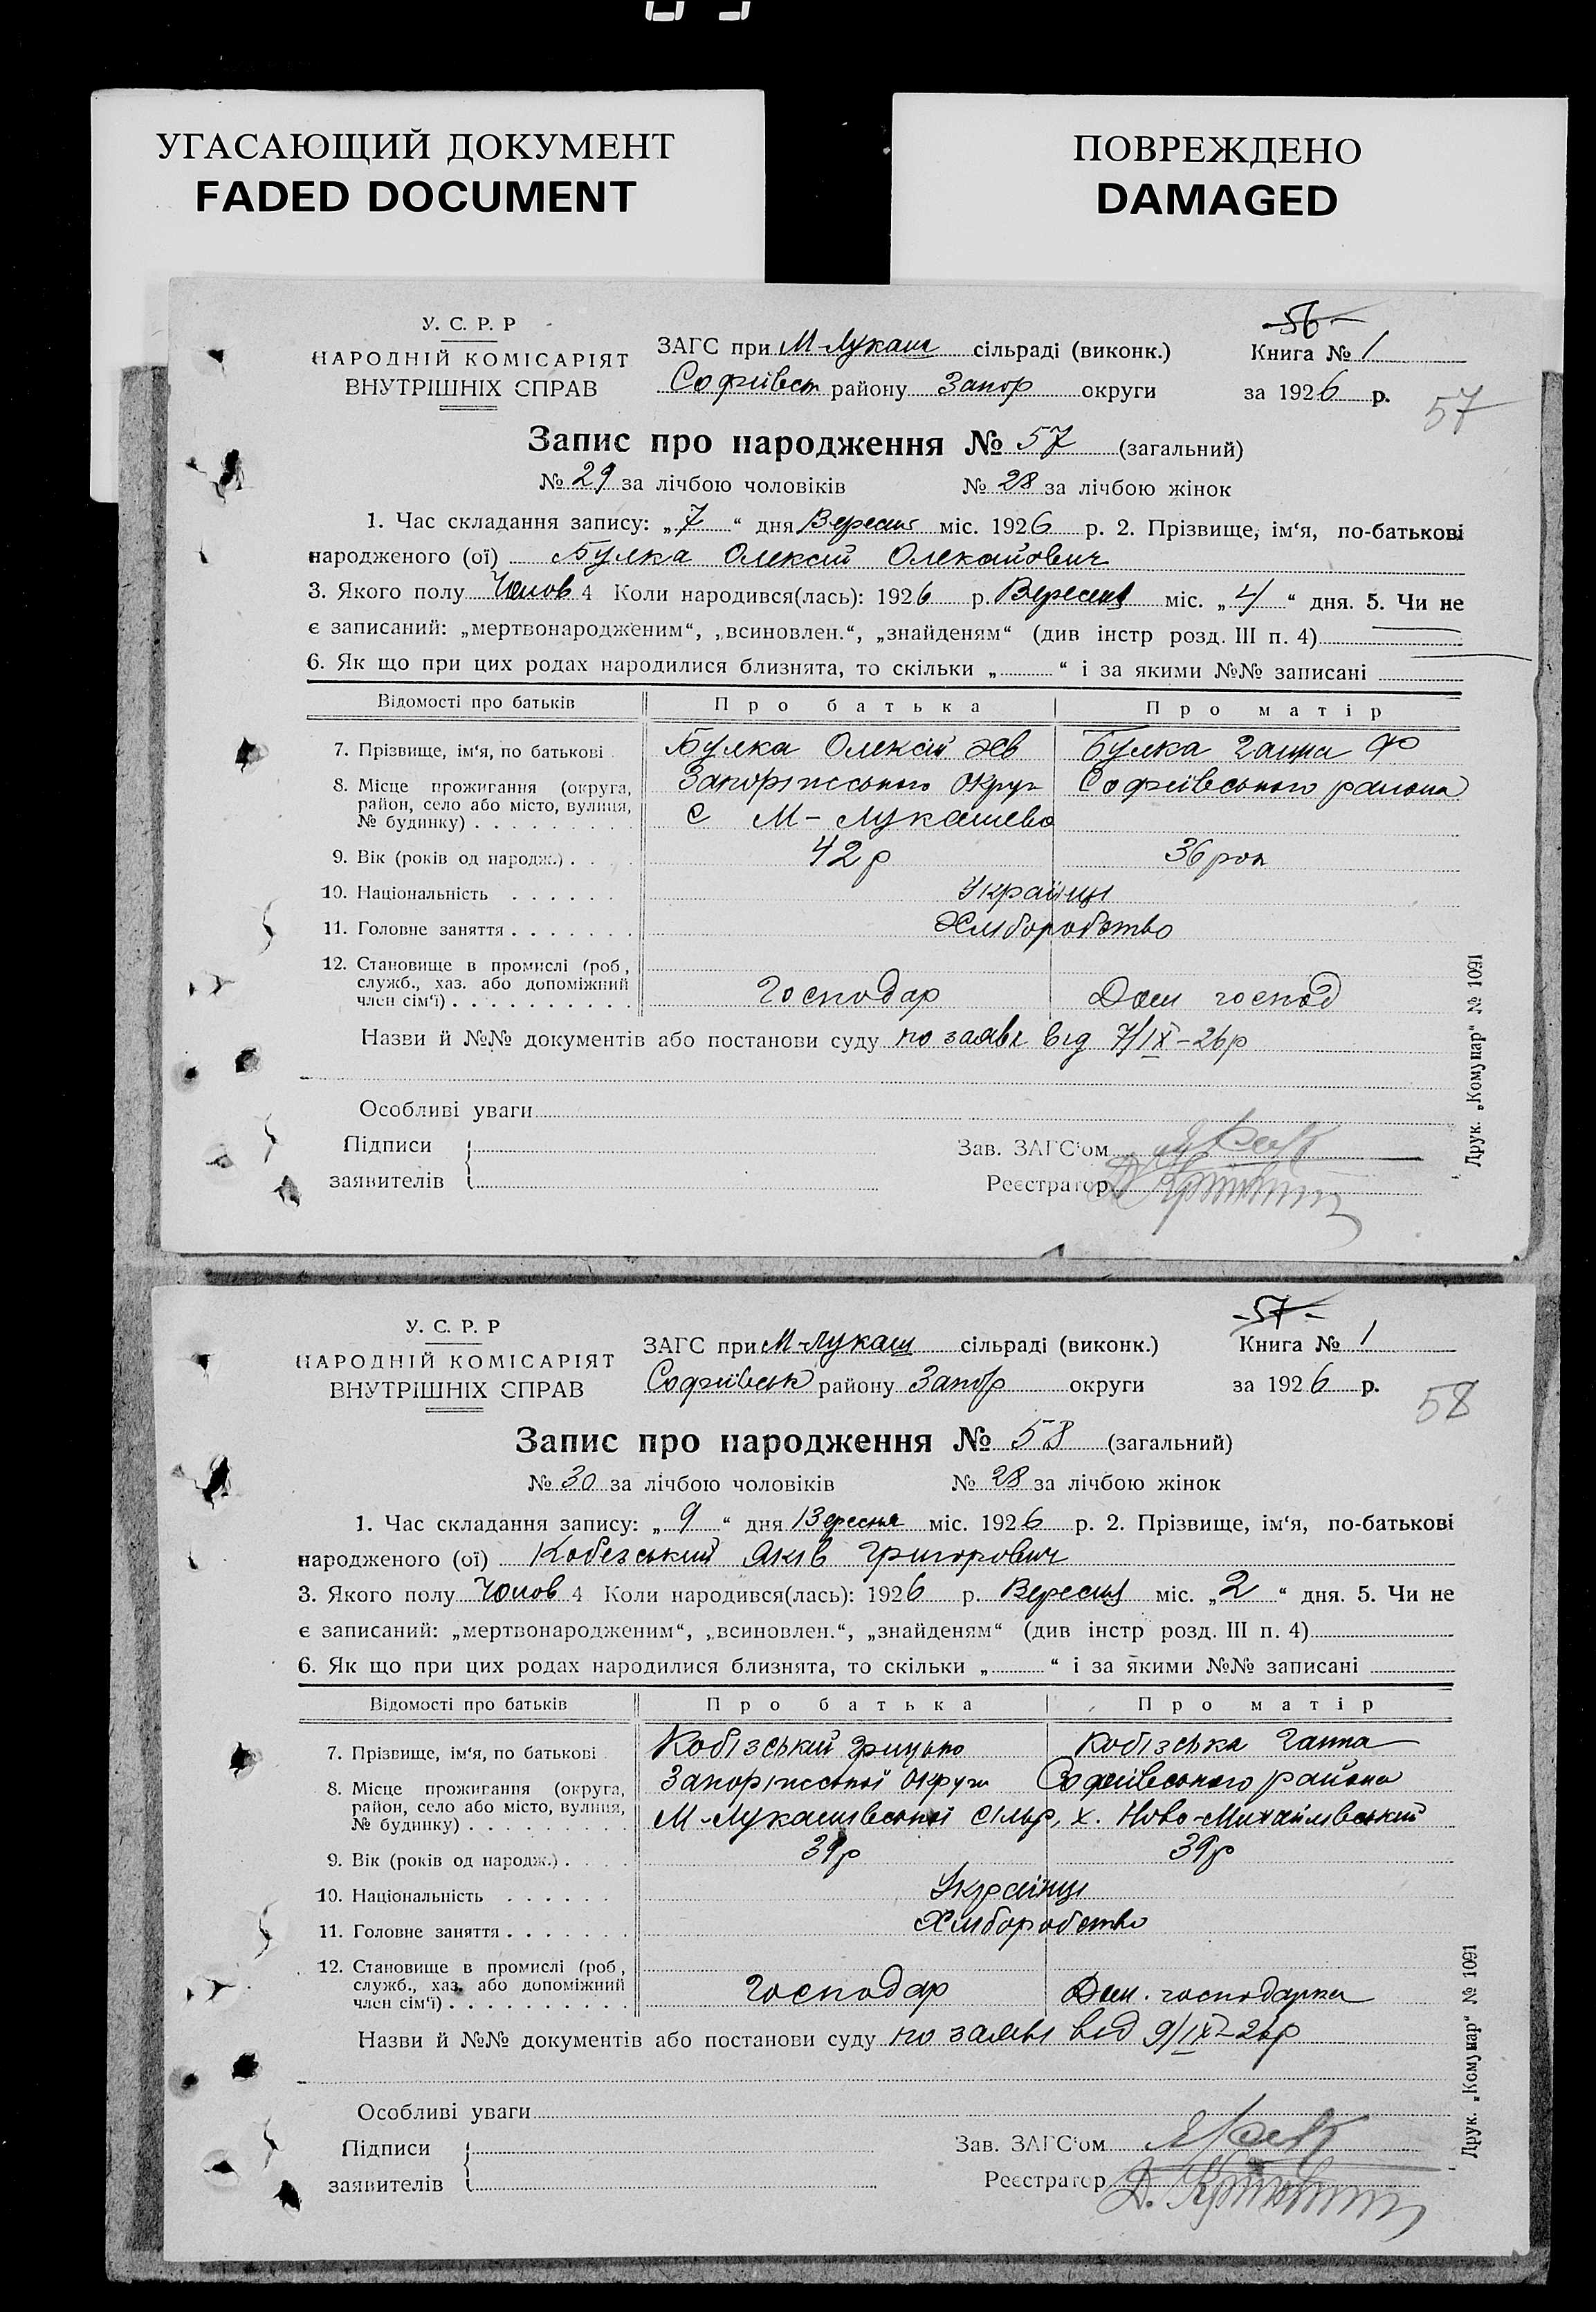 УГАСАЮЩИЙ ДОКУМЕНТ
FADED DOCUMENT
ПОВРЕЖДЕНО
DAMAGED
У. С. Р. Р
НАРОДНІЙ КОМІСАРІЯТ
ВНУТРІШНІХ СПРАВ
56
ЗАГС при М-Лукаш сільраді (виконк.) Книга № 1
Софіївськ району Запор округи за 1926 р.
57
Запис про народження № 57 (загальний)
№ 29 за лічбою чоловіків № 28 за лічбою жінок
1. Час складання запису: „7“ дня Вересня міс. 1926 р. 2. Прізвище, ім‘я, по-батькові
народженого (ої) Булка Олексій Олексійович
3. Якого полу Чолов 4 Коли народився(лась): 1926 р. Вересня міс. „4“ дня. 5. Чи не
є записаний: „мертвонародженим“, „всиновлен.“, „знайденям“ (див інстр розд. III п. 4)
6. Як що при цих родах народилися близнята, то скільки „ “ і за якими №№ записані
Відомості про батьків Про батька Про матір
7. Прізвище, ім‘я, по батькові Булка Олексій Булка Ганна Ф
8. Місце прожигання (округа, Запоріжського Округ Софіївського района
район, село або місто, вулиця,
№ будинку) с М-Лукашево
9. Вік (років од народж.) 42 р 36 рок
10. Національність Українці
11. Головне заняття Хліборобство
12. Становище в промислі (роб,
служб., хаз. або допоміжний
член сім‘ї) Господар Дом господ
Назви й №№ документів або постанови суду по заяві від 7/IX-26р
Особливі уваги
Підписи
заявителів
Зав. ЗАГС‘ом
Реєстратор
Друк. „Комунар“ № 1091
У. С. Р. Р
НАРОДНІЙ КОМІСАРІЯТ
ВНУТРІШНІХ СПРАВ
57
ЗАГС при М-Лукаш сільраді (виконк.) Книга № 1
Софіївськ району Запор округи за 1926 р.
58
Запис про народження № 58 (загальний)
№ 30 за лічбою чоловіків № 28 за лічбою жінок
1. Час складання запису: „9“ дня Вересня міс. 1926 р. 2. Прізвище, ім‘я, по-батькові
народженого (ої) Кобезський Яків Григорович
3. Якого полу Чолов 4 Коли народився(лась): 1926 р. Вересня міс. „2“ дня. 5. Чи не
є записаний: „мертвонародженим“, „всиновлен.“, „знайденям“ (див інстр розд. III п. 4)
6. Як що при цих родах народилися близнята, то скільки „ “ і за якими №№ записані
Відомості про батьків Про батька Про матір
7. Прізвище, ім‘я, по батькові Кобізський Грицько Кобізська Ганна
8. Місце прожигання (округа, Запоріжської Округи Софиівського района
район, село або місто, вулиця,
№ будинку) М-Лукашівської сільр, х. Ново-Михайлівський
9. Вік (років од народж.) 39р 39р
10. Національність Українці
11. Головне заняття Хліборобство
12. Становище в промислі (роб,
служб., хаз. або допоміжний
член сім‘ї) Господар Дом. господарка
Назви й №№ документів або постанови суду по заяві від 9/IX-26р
Особливі уваги
Підписи
заявителів
Зав. ЗАГС‘ом
Реєстратор
Друк. „Комунар“ № 1091